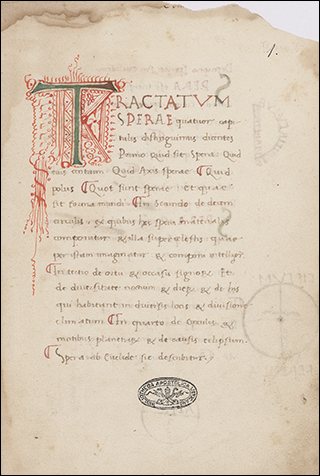 1.
TRACTATVM
SPERAE quatuor capi
tulis distinguimus dicentes
Primo Quid sit Spera Quid
eius centrum Quid Axis sperae Quid
polus Quot sunt sperae et quae
sit forma mundi In Secundo de
circulis ex quibus spera materialis
componitur et illa supercelestis quae
per istam imaginatur
Tercio de ortu et occasu signorum Et
de diuersitate noctium et
qui habitant in diuersis locis et diuisione
climatum In quarto de Circulis et
motibus planetarum et de causis eclipsium
Spera ab Euclide sic describitur